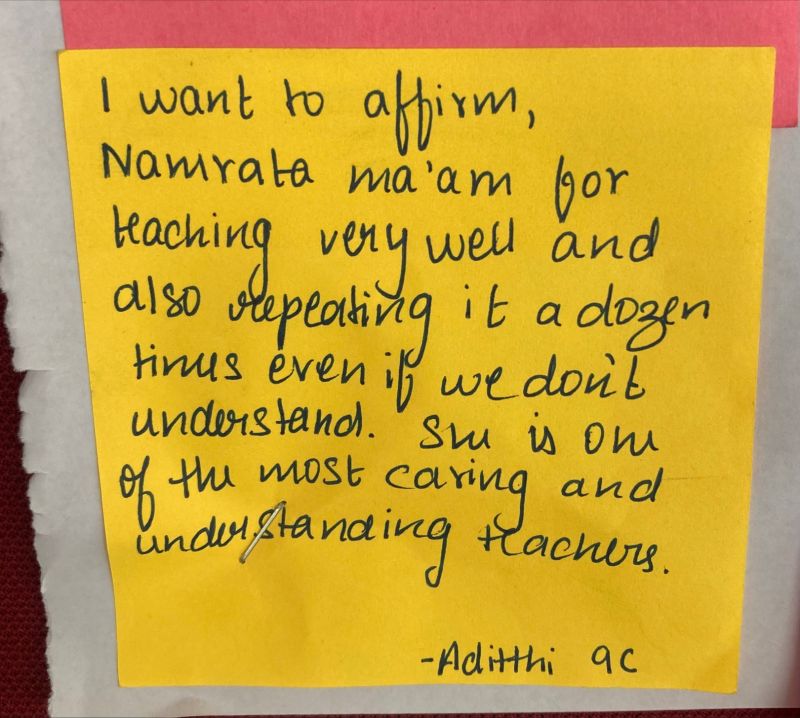 I want to affirm,
Namrata ma'am for
teaching very well and
also repeating it a dozen
times even if we don't
understand. She is one
of the most caring and
understanding teachers.
-Aditthi 9C